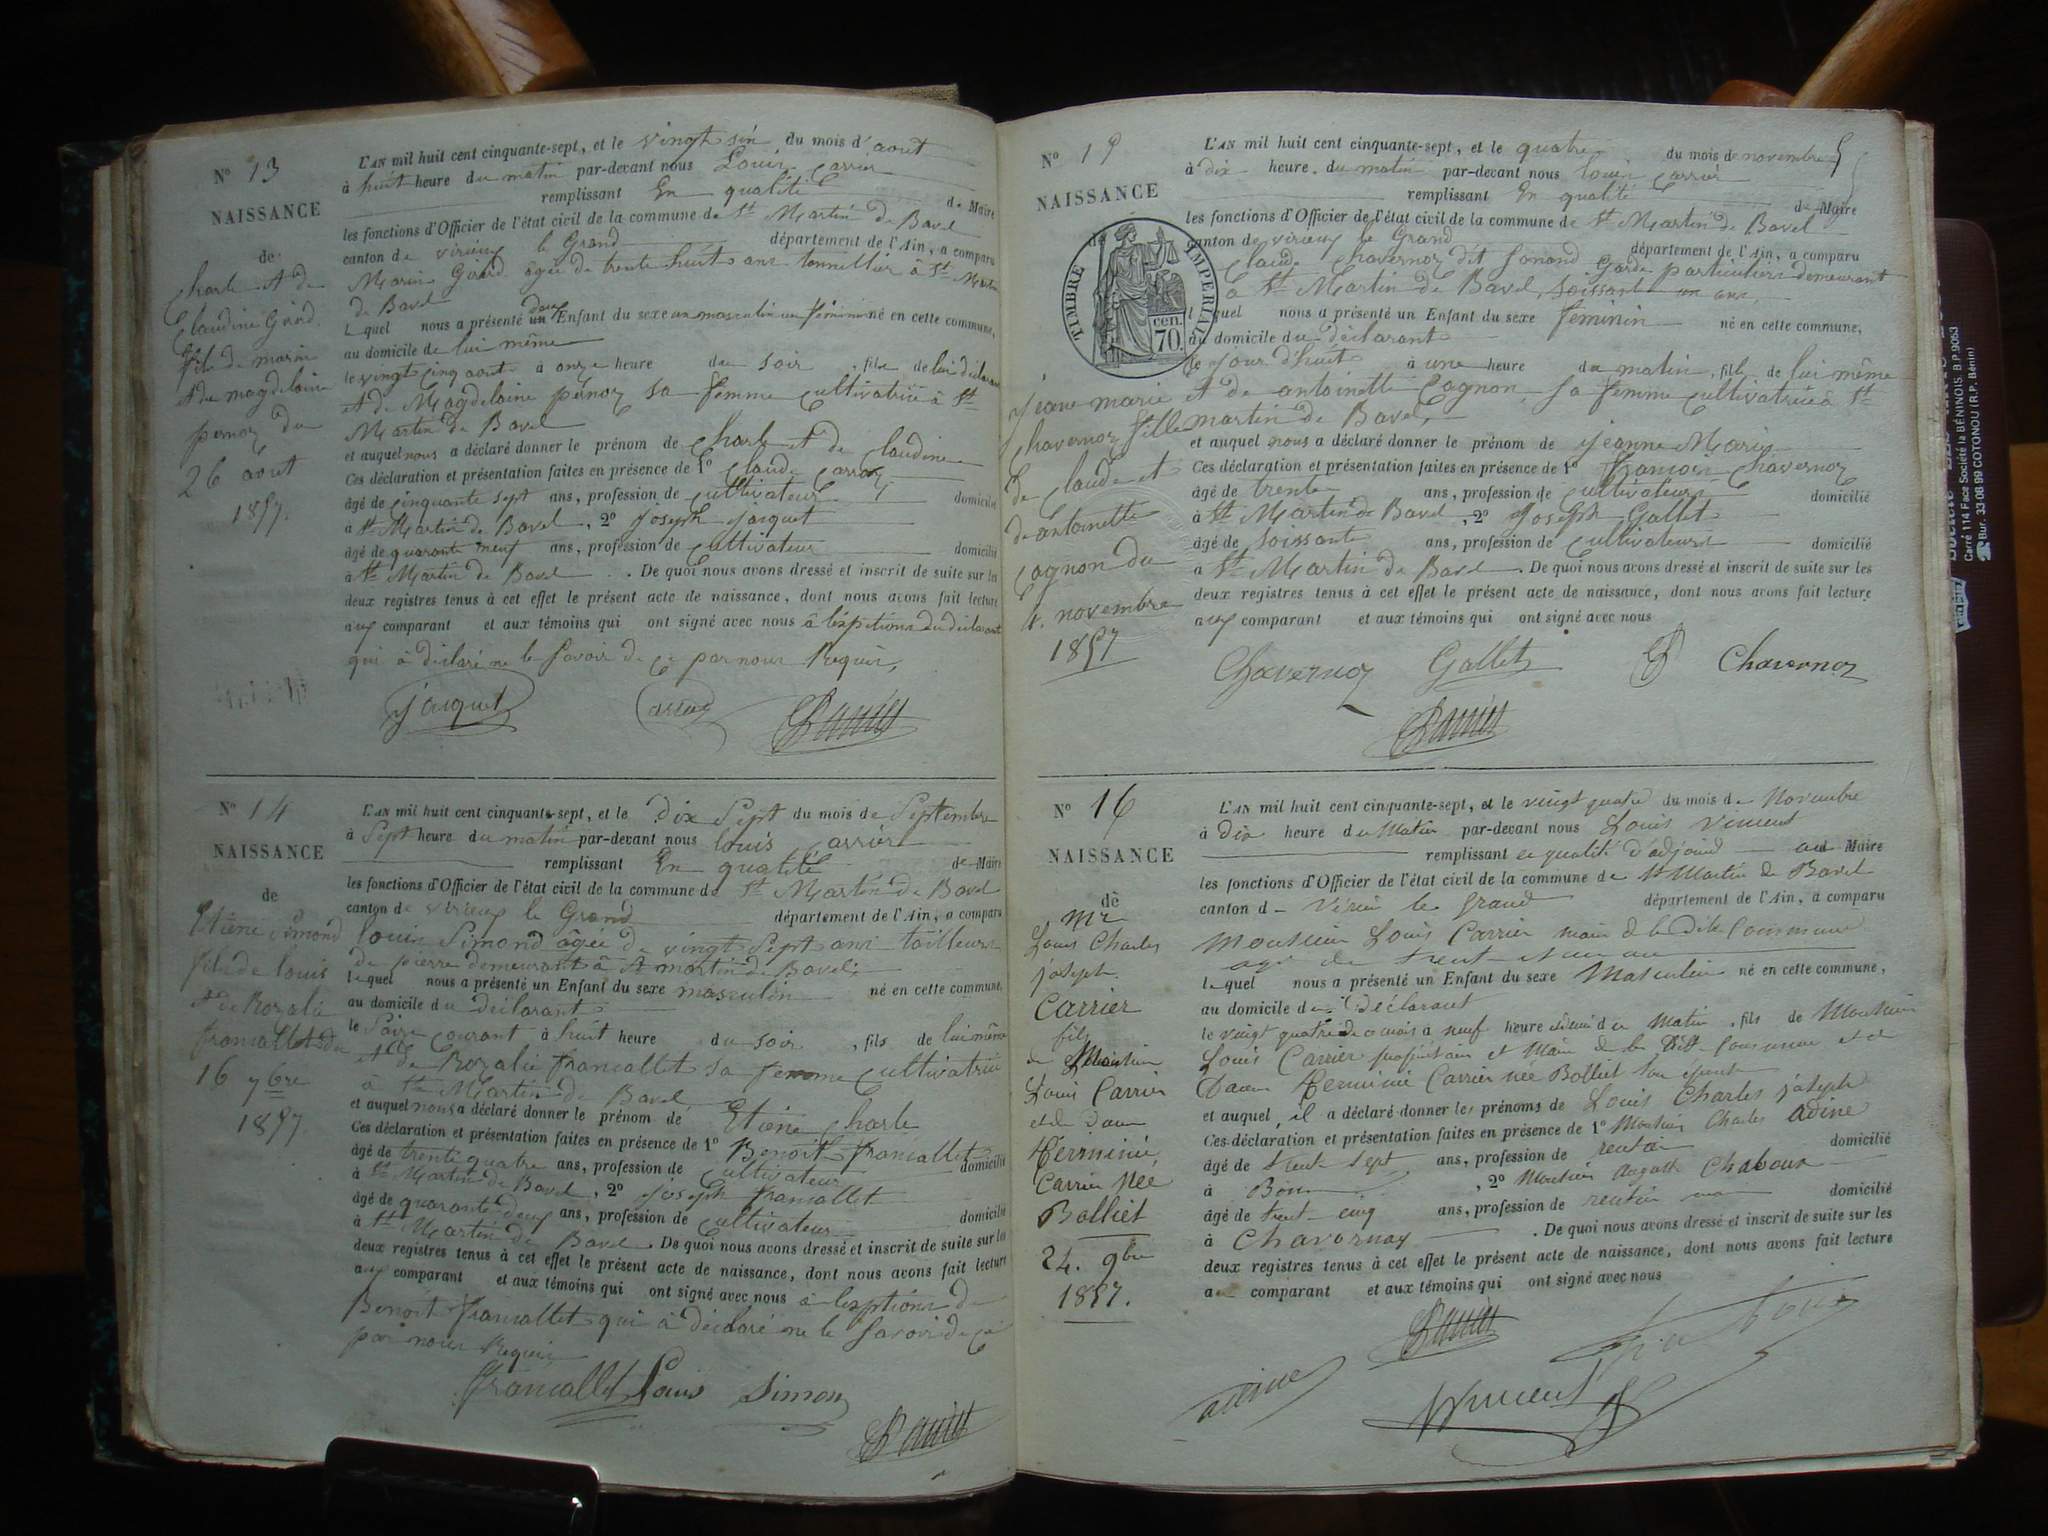 N° 13
NAISSANCE
de
Charle et de
Claudine Girid
fils de marin
et de magdelaine
pernoz du
26 aout
1857.
L'AN mil huit cent cinquante-sept, et le vingt sin du mois d'aout
à huit heure du matin par-devant nous Louis Carrier
remplissant En qualité de Maire
les fonctions d'Officier de l'état civil de la commune de St Martin de Bavel
canton de virieux le Grand département de l'Ain, a comparu
Marin Girid âgée de trente huit ans tonnellier à St Martin
de Bavel
lequel nous a présenté deux Enfant du sexe un masculin un féminin né en cette commune,
au domicile de lui même
le vingt cinq aout à onze heure du soir, fils de lui déclarant
et de Magdelaine pernoz sa femme cultivatrice à St
Martin de Bavel
et auquel nous a déclaré donner le prénom de Charle et de Claudine
Ces déclaration et présentation faites en présence de 1° Claude Carraz
âgé de cinquante sept ans, profession de cultivateur domicilié
à St Martin de Bavel, 2° Joseph Jacquet
âgé de quarante neuf ans, profession de cultivateur domicilié
à St Martin de Bavel. De quoi nous avons dressé et inscrit de suite sur les
deux registres tenus à cet effet le présent acte de naissance, dont nous avons fait lecture
aux comparant et aux témoins qui ont signé avec nous à l'exption du déclarant
qui à déclaré ne le savoir de ce par nous Requis,
Jacquet Carraz Carrier
N° 14
NAISSANCE
de
Etiene Simond
fils de louis
et de Rozalie
francallet du
16 7bre
1857
L'AN mil huit cent cinquante-sept, et le dix Sept du mois de Septembre
à Sept heure du matin par-devant nous louis Carrier
remplissant En qualité de Maire
les fonctions d'Officier de l'état civil de la commune de St Martin de Bavel
canton de virieux le Grand département de l'Ain, a comparu
louis Simond âgée de vingt Sept ans tailleur
de pierre demeurant à St martin de Bavel
lequel nous a présenté un Enfant du sexe masculin né en cette commune,
au domicile du déclarant
le Saize courant à huit heure du soir, fils de lui même
et de Rozalie francallet sa femme cultivatrice
à St Martin de Bavel
et auquel nous a déclaré donner le prénom de Etiene Charle
Ces déclaration et présentation faites en présence de 1° Benoit francallet
âgé de trente quatre ans, profession de cultivateur domicilié
à St Martin de Bavel, 2° Joseph francallet
âgé de quarante deux ans, profession de cultivateur domicilié
à St Martin de Bavel. De quoi nous avons dressé et inscrit de suite sur les
deux registres tenus à cet effet le présent acte de naissance, dont nous avons fait lecture
aux comparant et aux témoins qui ont signé avec nous à l'exption de
Benoit francallet qui à déclaré ne le savoir de ce
par nous Requis
francallet Louis Simon
Carrier
N° 15
NAISSANCE
TIMBRE IMPERIAL
70 cen.
Jeane marie
Chavernoz fille
de Claude et
de antoinette
Cognon du
4. novembre
1857
L'AN mil huit cent cinquante-sept, et le quatre du mois de novembre
à dix heure du matin par-devant nous louis Carrier
remplissant En qualité de Maire
les fonctions d'Officier de l'état civil de la commune de St Martin de Bavel
canton de virieux le Grand département de l'Ain, a comparu
Claude Chavernoz dit Garde particulier demeurant
à St Martin de Bavel, soissante un ans,
lequel nous a présenté un Enfant du sexe féminin né en cette commune,
au domicile du déclarant
le jour d'huit à une heure du matin, fils de lui même
et de antoinette Cognon sa femme cultivatrice à St
martin de Bavel,
et auquel nous a déclaré donner le prénom de Jeanne Marie
Ces déclaration et présentation faites en présence de 1° francois Chavernoz
âgé de trente ans, profession de cultivateur domicilié
à St Martin de Bavel, 2° Joseph Gallet
âgé de soissante ans, profession de cultivateur domicilié
à St Martin de Bavel. De quoi nous avons dressé et inscrit de suite sur les
deux registres tenus à cet effet le présent acte de naissance, dont nous avons fait lecture
aux comparant et aux témoins qui ont signé avec nous
Chavernoz Gallet Chavernoz
Carrier
N° 16
NAISSANCE
de
Mr
Louis Charles
joseph
Carrier
fils
de Monsieur
Louis Carrier
et de Dame
Herminie
Carrier née
Bolliet
24. 9bre
1857.
L'AN mil huit cent cinquante-sept, et le vingt quatre du mois de Novembre
à Dix heure du Matin par-devant nous Louis Vincent
remplissant en qualité d'adjoint au Maire
les fonctions d'Officier de l'état civil de la commune de St Martin de Bavel
canton d Virieu le Grand département de l'Ain, a comparu
Monsieur Louis Carrier maire de la dite Commune
agé de trente et un an
lequel nous a présenté un Enfant du sexe Masculin né en cette commune,
au domicile du Déclarant
le vingt quatre de ce mois à neuf heure du Matin, fils de Monsieur
Louis Carrier propriétaire et Maire de la dite Commune et de
Dame Herminie Carrier née Bolliet son épouse
et auquel, il a déclaré donner les prénoms de Louis Charles joseph
Ces déclaration et présentation faites en présence de 1° Monsieur Charles Adine
âgé de trente sept ans, profession de rentier domicilié
à , 2° Monsieur Auguste Chaboux
âgé de trente cinq ans, profession de rentier domicilié
à Chavornay. De quoi nous avons dressé et inscrit de suite sur les
deux registres tenus à cet effet le présent acte de naissance, dont nous avons fait lecture
au comparant et aux témoins qui ont signé avec nous
Carrier
adine Vincent
Carré 114 Face Société la BÉNINOIS B.P. 9053
Bur. 33 08 99 COTONOU (R.P. Bénin)